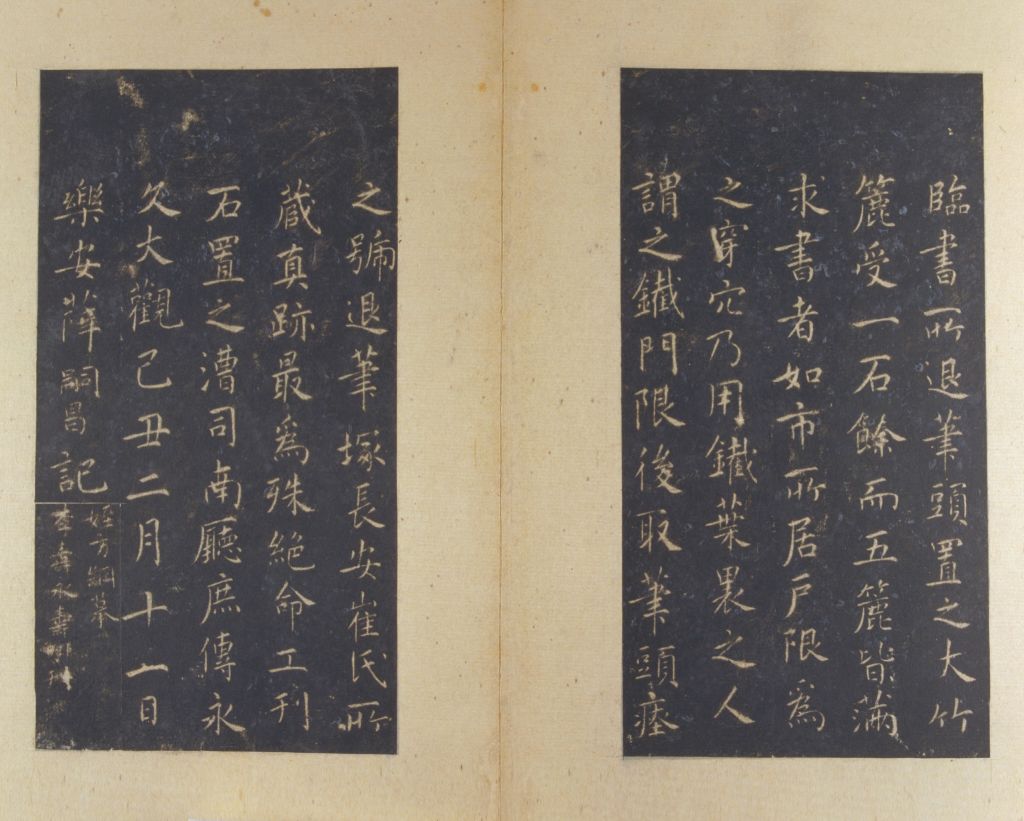 臨書所退筆頭置之大竹
簏受一石餘而五簏皆滿
求書者如市所居戶限為
之穿穴乃用鐵葉裹之人
謂之鐵門限後取筆頭瘞
之號退筆塚長安崔氏所
藏真跡最為殊絕命工刊
石置之漕司南廳庶傳永
久大觀己丑二月十一日
樂安薛嗣昌記
姪方綱摹
李壽永壽刊